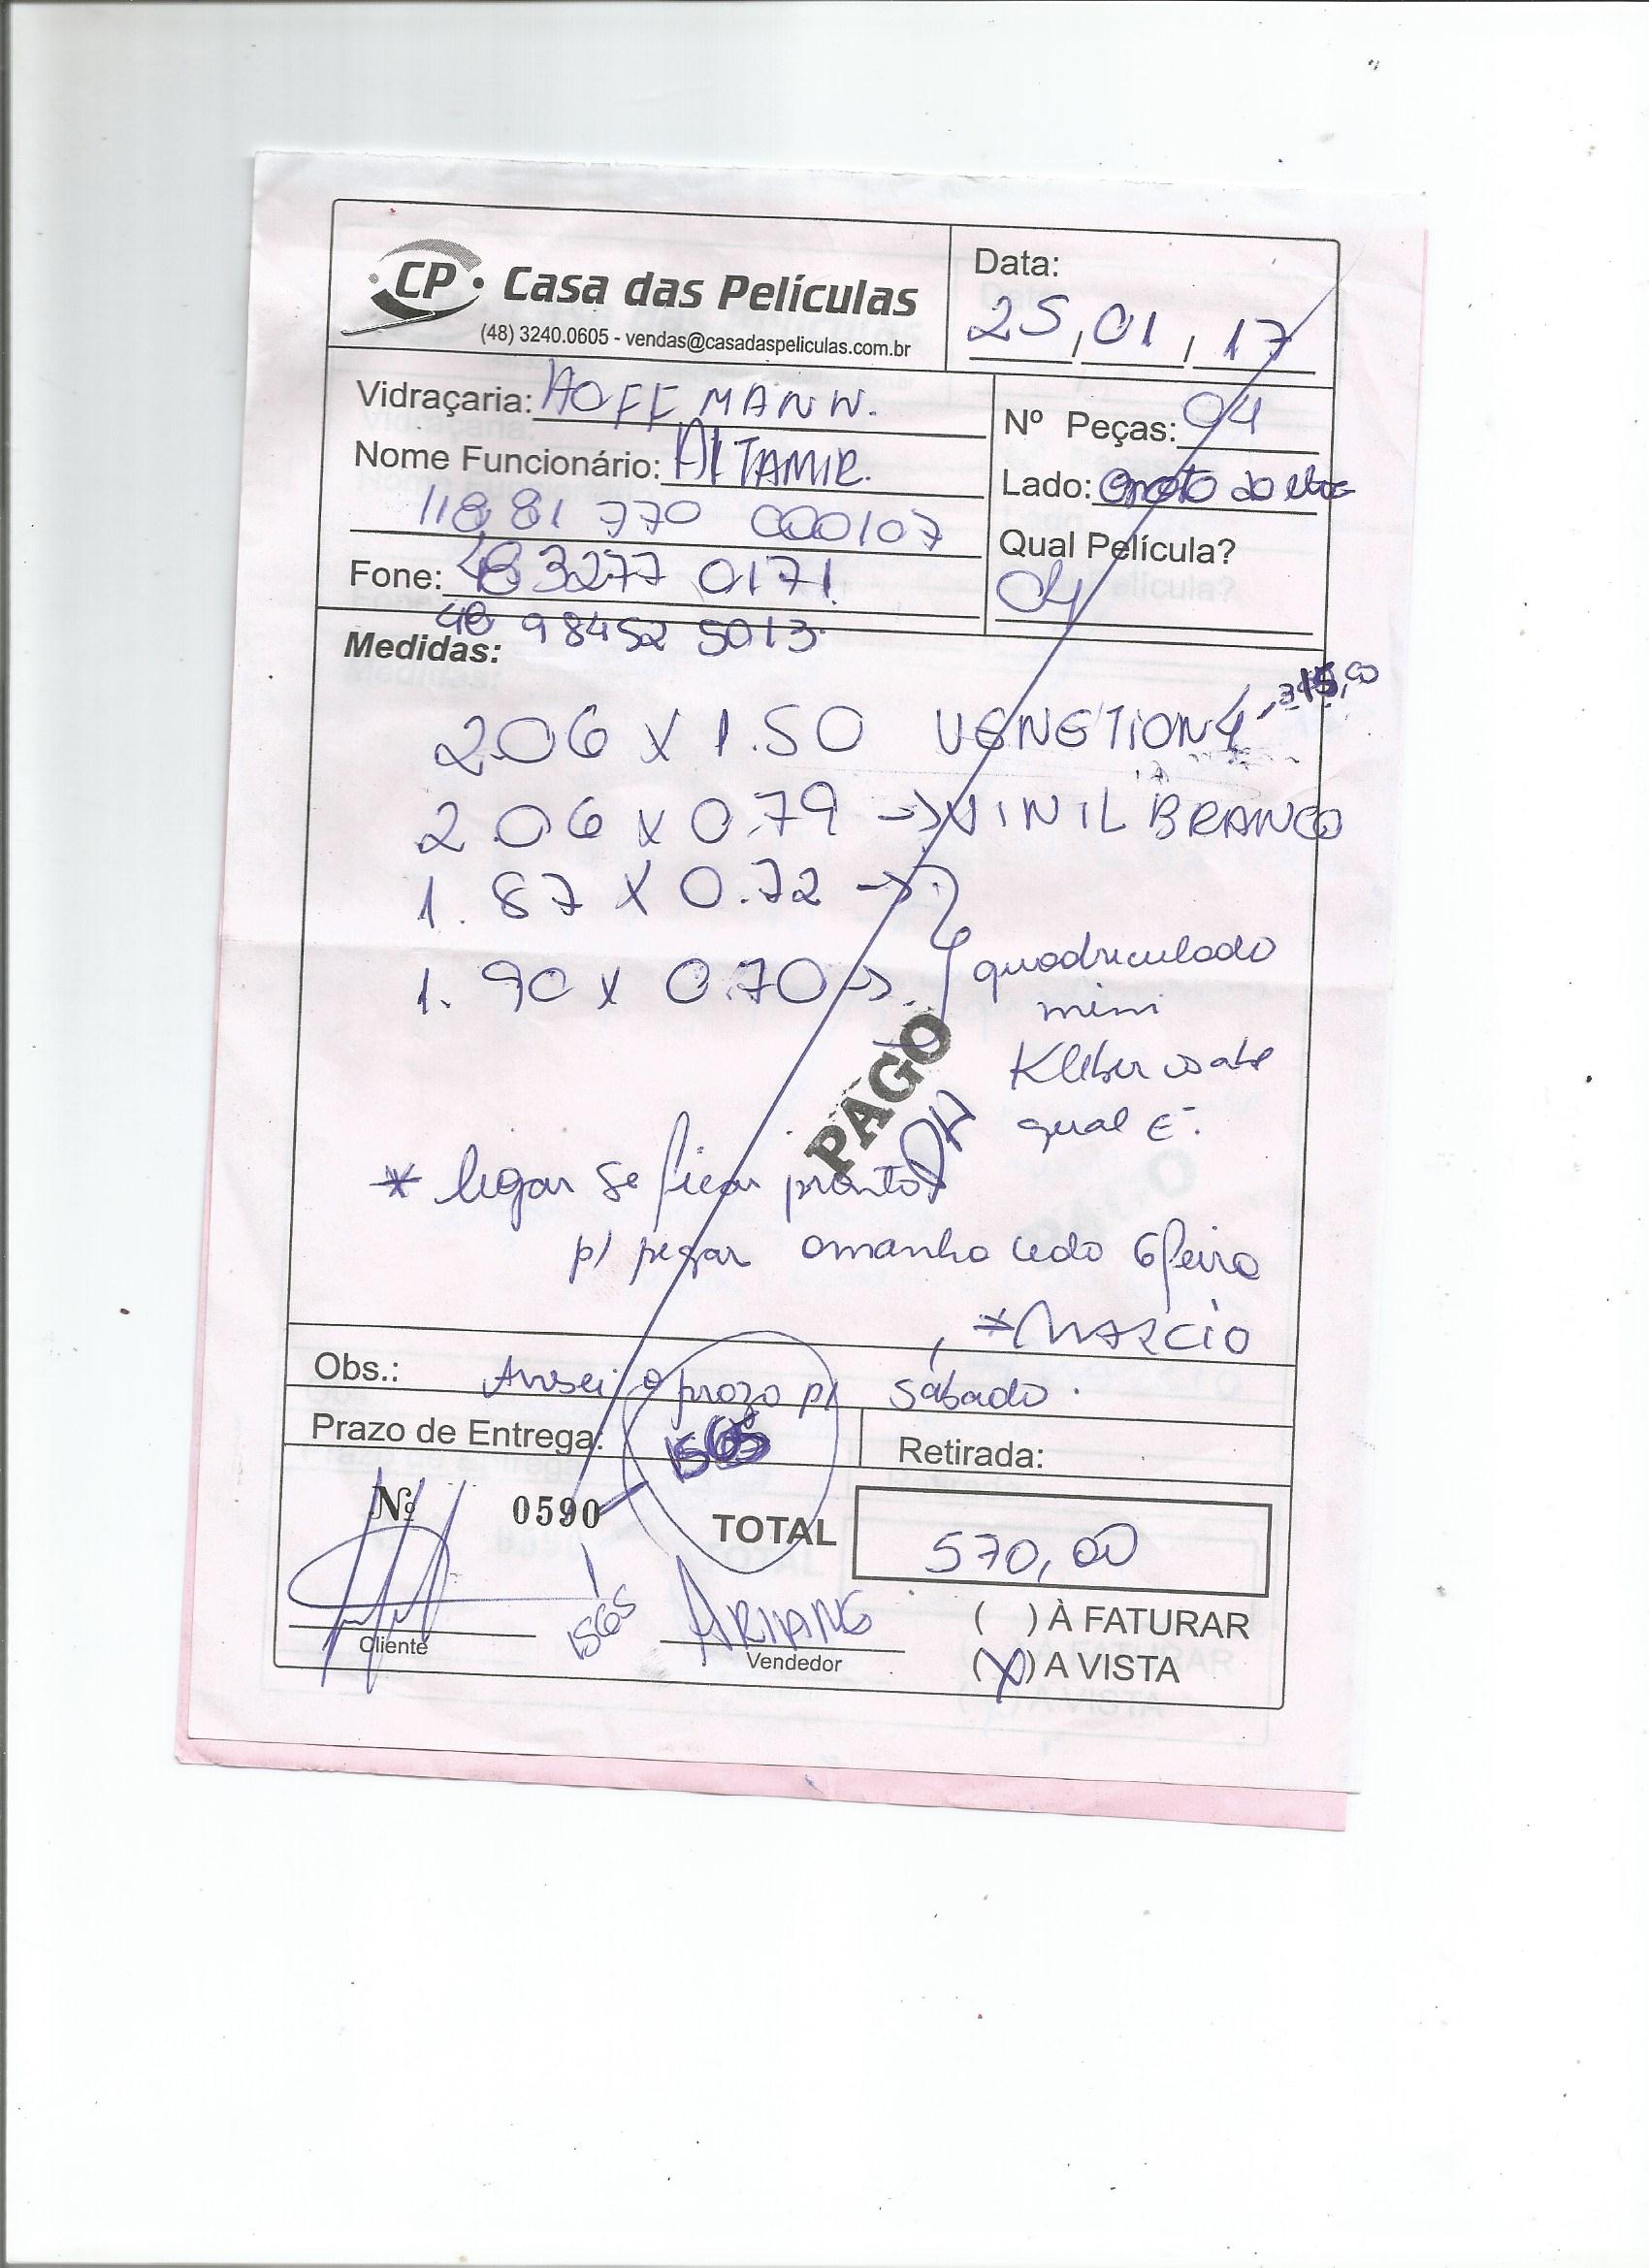 CP Casa das Películas
(48) 3240.0605 - vendas@casadaspeliculas.com.br
Data:
25/01/17
Vidraçaria: HOFFMANN.
Nome Funcionário: ALTAMIR.
11881770 000107
Fone: 48 3277 0171
48 98452 5013
Nº Peças: 04
Lado:
Qual Película?
04
Medidas:
2.06 X 1.50 VENETION
2.06 X 0.79 -> VINIL BRANCO
1.87 X 0.72 ->
1.90 X 0.70 ->
quadriculado
mini
Kleber sabe
qual E.
PAGO
* ligar se ficar pronto
p/ pegar amanha cedo 6feira
* MARCIO
Obs.: Avisei o prazo p/ sábado.
Prazo de Entrega:
Retirada:
Nº 0590
TOTAL 570,00
1565
Cliente
ARIANE
Vendedor
( ) À FATURAR
(X) A VISTA